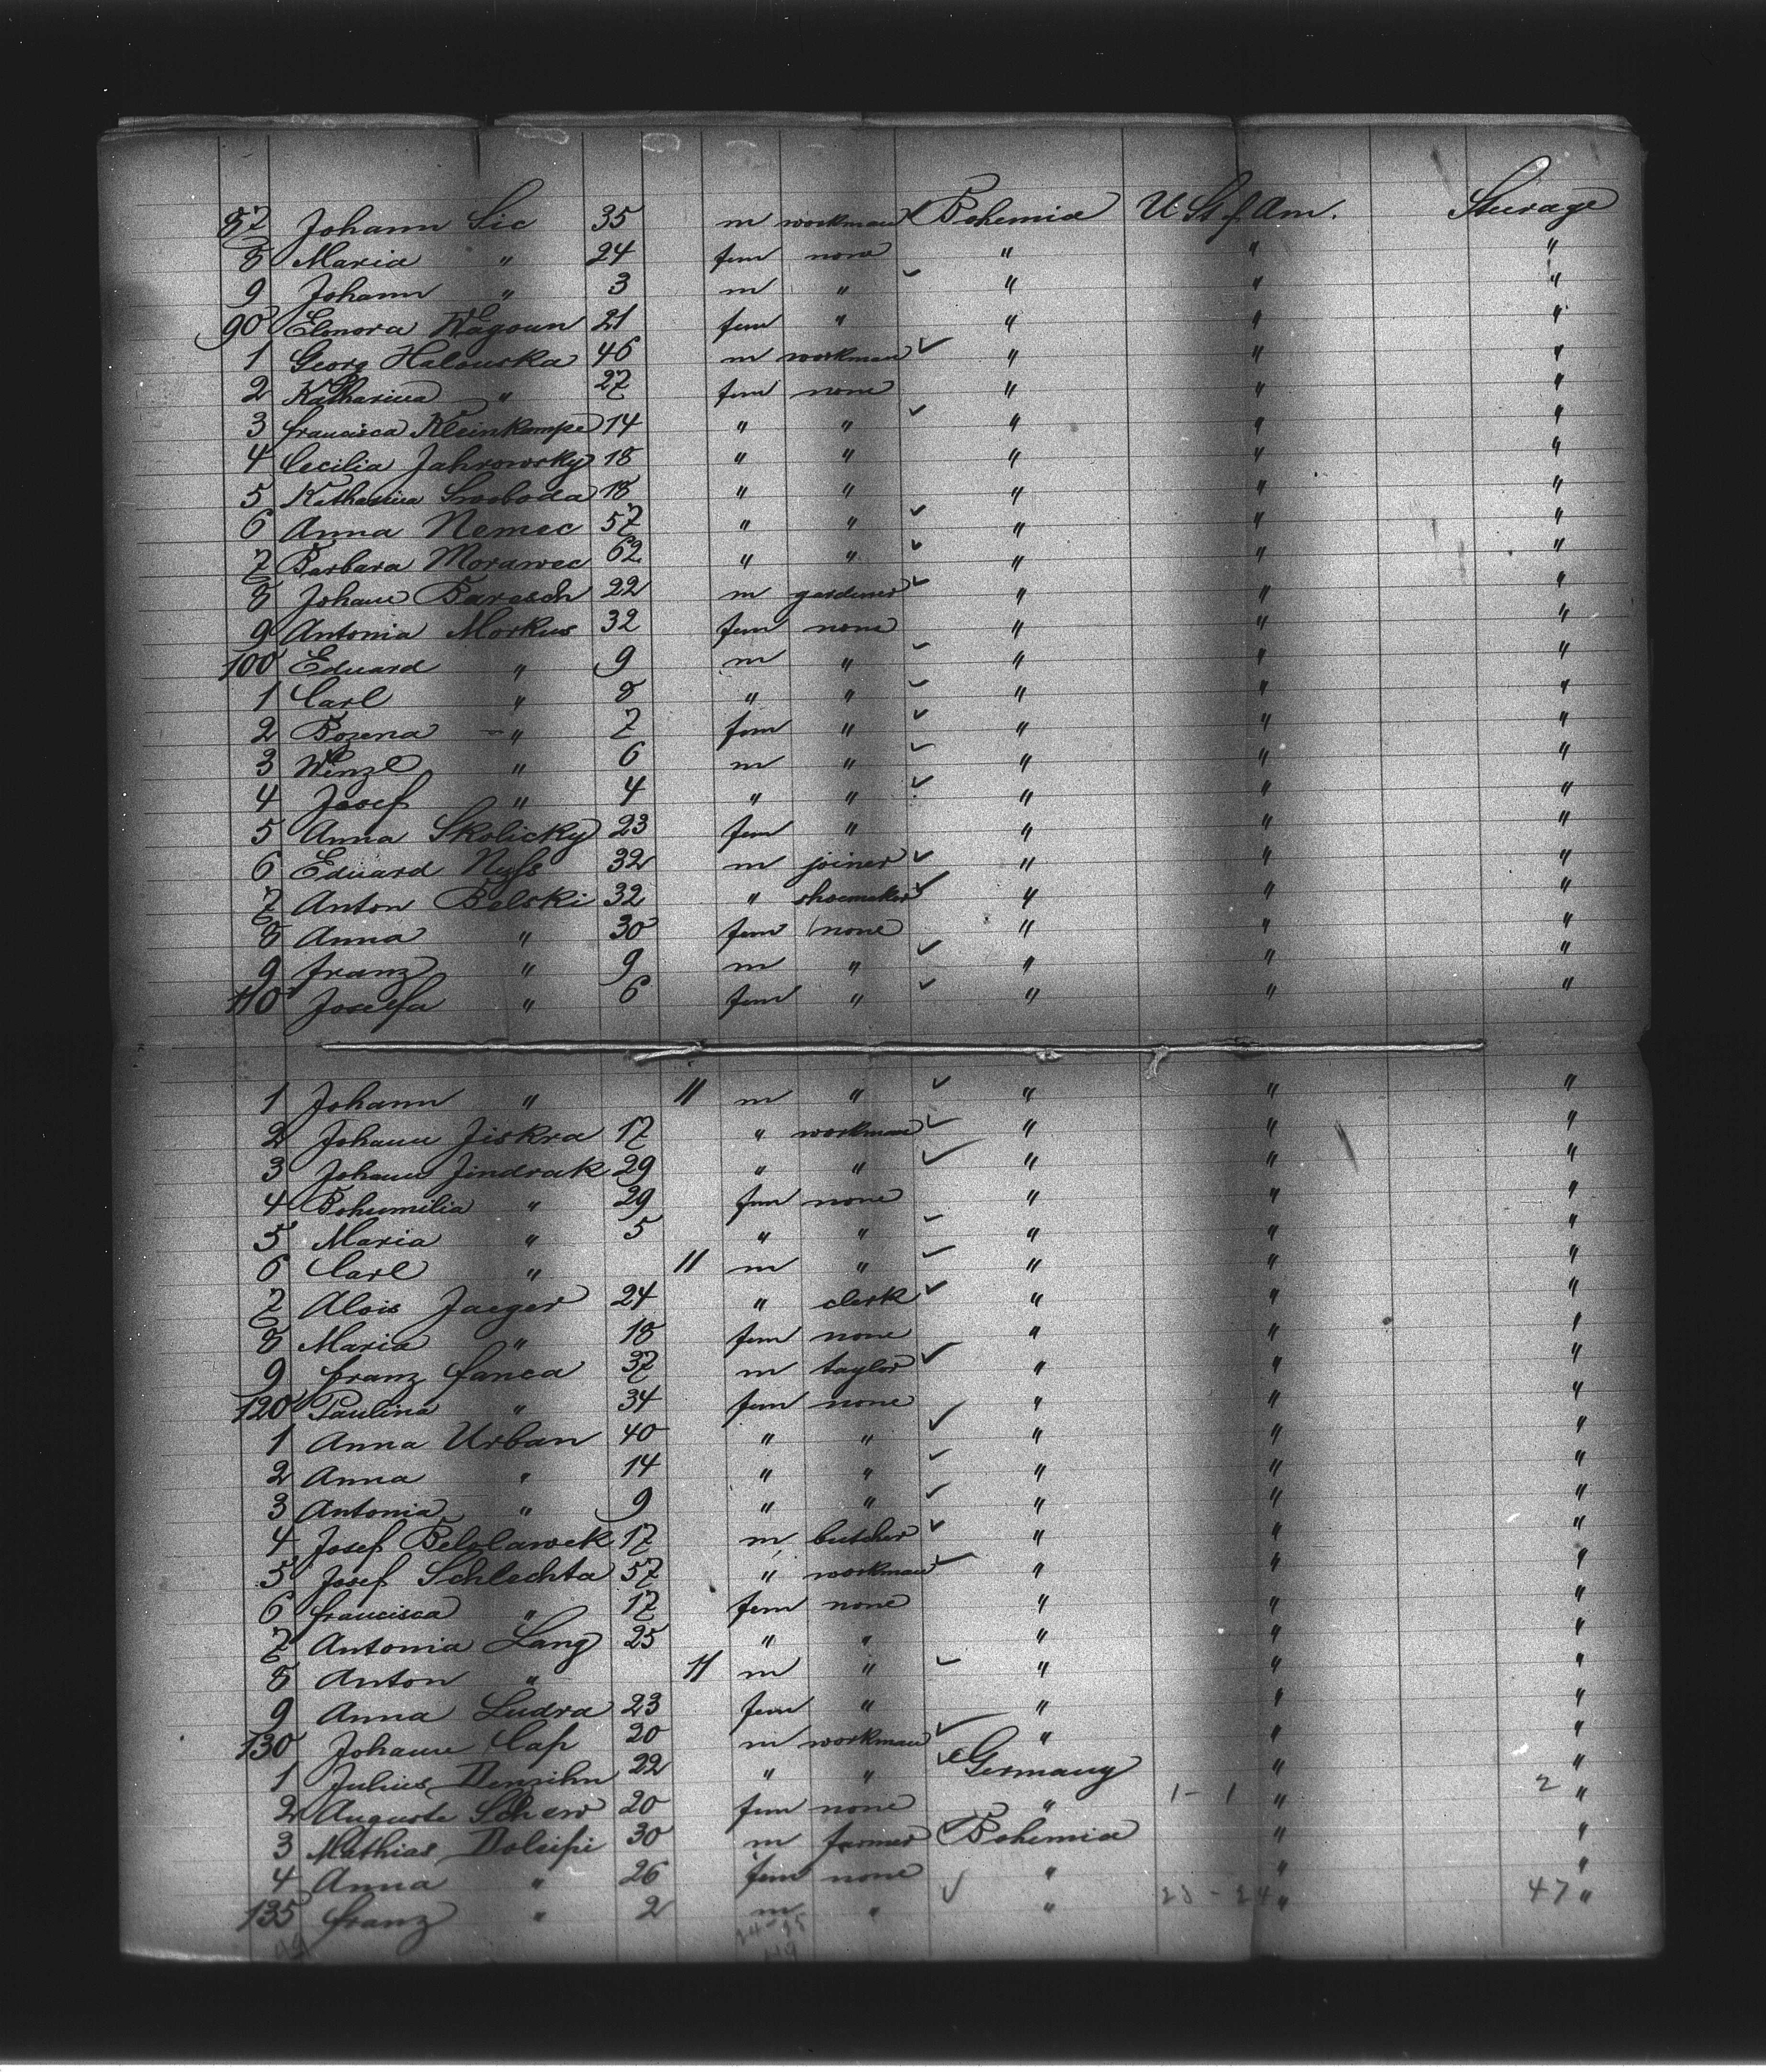 87 Johann Sic 35 m workman Bohemia U St of Am. Sturage
8 Maria " 24 fem none " " "
9 Johann " 3 m " " " "
90 Elenora Wagoun 21 fem " " " "
1 Georg Halouska 46 m workman " " "
2 Katharina " 27 fem none " " "
3 Francisca Kleinkampe 14 " " " " "
4 Cecilia Jahrowsky 18 " " " " "
5 Katharina Swoboda 18 " " " " "
6 Anna Nemec 57 " " " " "
7 Barbara Morawec 62 " " " " "
8 Johann Baresch 22 m gardener " " "
9 Antonia Morkus 32 fem none " " "
100 Eduard " 9 m " " " "
1 Carl " 8 " " " " "
2 Bozena " 7 fem " " " "
3 Wenzl " 6 m " " " "
4 Josef " 4 " " " " "
5 Anna Skolicky 23 fem " " " "
6 Eduard Nyss 32 m joiner " " "
7 Anton Belski 32 " shoemaker " " "
8 Anna " 30 fem none " " "
9 Franz " 9 m " " " "
110 Josefa " 6 fem " " " "
1 Johann " 11 m " " " "
2 Johann Jiskra 17 " workman " " "
3 Johann Jindrak 29 " " " " "
4 Bohumilia " 29 fem none " " "
5 Maria " 5 " " " " "
6 Carl " 11 m " " " "
7 Alois Jaeger 24 " clerk " " "
8 Maria " 18 fem none " " "
9 Franz Fanca 37 m taylor " " "
120 Paulina " 34 fem none " " "
1 Anna Urban 40 " " " " "
2 Anna " 14 " " " " "
3 Antonia " 9 " " " " "
4 Josef Belolawek 17 m butcher " " "
5 Josef Schlechta 57 " workman " " "
6 Francisca " 17 fem none " " "
7 Antonia Lang 25 " " " " "
8 Anton " 11 m " " " "
9 Anna Ludra 23 fem " " " "
130 Johann Cap 20 m workman " " "
1 Julius Denzihn 22 " " Germany " "
2 Auguste 20 fem none " 1 - 1 " 2 "
3 Mathias 30 m farmer Bohemia " "
4 Anna " 26 fem none " " "
135 Franz " 2 m " " 23 - 24 " 47 "